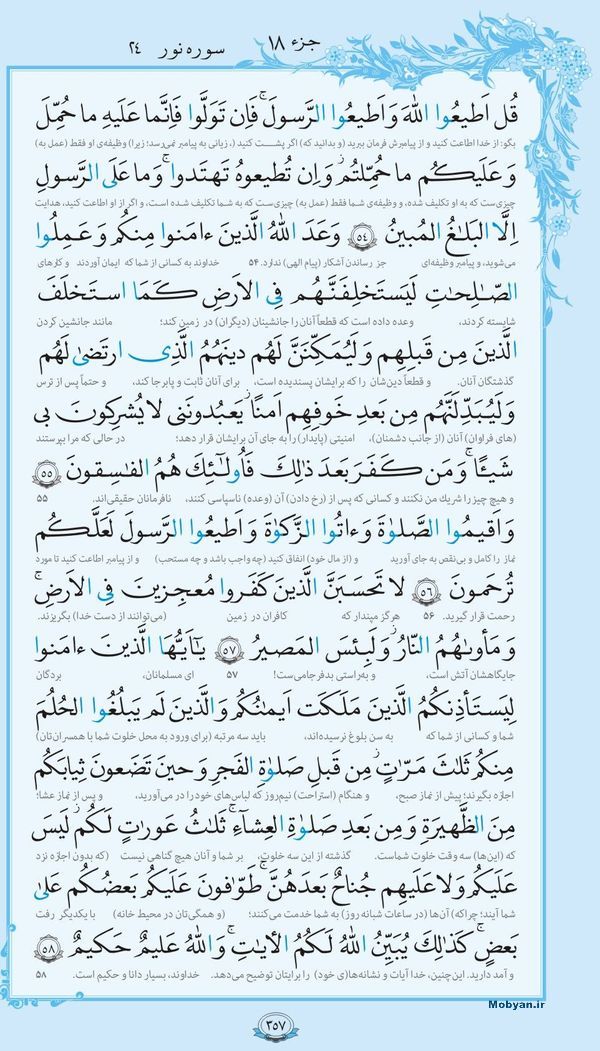 جزء ۱۸ سوره نور ۲۴
قُل اَطيعُوا اللهَ وَ اَطيعُوا الرَّسولَ ۚ فَاِن تَوَلَّوا فَاِنَّما عَلَيهِ ما حُمِّلَ
بگو: از خدا اطاعت کنید و از پیامبرش فرمان برید (و بدانید که) اگر پشت کنید (، زیانی به پیامبر نمی‌رسد؛ زیرا) وظیفه‌ی او فقط (عمل به)
وَ عَلَيكُم ما حُمِّلتُم ۖ وَ اِن تُطيعوهُ تَهتَدوا ۚ وَ ما عَلَى الرَّسولِ
چیزی‌ست که به او تکلیف شده، و وظیفه‌ی شما فقط (عمل به) چیزی‌ست که به شما تکلیف شده است، و اگر از او اطاعت کنید، هدایت
اِلَّا البَلاغُ المُبينُ ﴿۵۴﴾ وَعَدَ اللهُ الَّذينَ ءامَنوا مِنكُم وَ عَمِلُوا
می‌شوید، و پیامبر وظیفه‌ای جز رساندن آشکار (پیام الهی) ندارد. ۵۴ خداوند به کسانی از شما که ایمان آوردند و کارهای
الصّالِحاتِ لَيَستَخلِفَنَّهُم فِي الاَرضِ كَمَا استَخلَفَ
شایسته کردند، وعده داده است که قطعاً آنان را جانشینان (دیگران) در زمین کند؛ مانند جانشین کردن
الَّذينَ مِن قَبلِهِم وَ لَيُمَكِّنَنَّ لَهُم دينَهُمُ الَّذِي ارتَضىٰ لَهُم
گذشتگان آنان. و قطعاً دین‌شان را که برایشان پسندیده است، برای آنان ثابت و پابرجا کند، و حتماً پس از ترس
وَ لَيُبَدِّلَنَّهُم مِن بَعدِ خَوفِهِم اَمنًا ۚ يَعبُدونَني لا يُشرِكونَ بي
(های فراوان) آنان (از جانب دشمنان)، امنیتی (پایدار) را به جای آن برایشان قرار دهد؛ در حالی که مرا بپرستند
شَيئًا ۚ وَ مَن كَفَرَ بَعدَ ذٰلِكَ فَاُولٰئِكَ هُمُ الفاسِقونَ ﴿۵۵﴾
و هیچ چیز را شریک من نکنند و کسانی که پس از (رخ دادن) آن (وعده) ناسپاسی کنند، نافرمانان حقیقی‌اند. ۵۵
وَ اَقيمُوا الصَّلوٰةَ وَ ءاتُوا الزَّكوٰةَ وَ اَطيعُوا الرَّسولَ لَعَلَّكُم
نماز را کامل و بی‌نقص به جای آورید و (از مال خود) انفاق کنید (چه واجب باشد و چه مستحب) و از پیامبر اطاعت کنید تا مورد
تُرحَمونَ ﴿۵۶﴾ لا تَحسَبَنَّ الَّذينَ كَفَروا مُعجِزينَ فِي الاَرضِ ۚ
رحمت قرار گیرید. ۵۶ هرگز مپندار که کافران در زمین (می‌توانند از دست خدا) بگریزند.
وَ مَأوىٰهُمُ النّارُ وَ لَبِئسَ المَصيرُ ﴿۵۷﴾ يٰاَيُّهَا الَّذينَ ءامَنوا
جایگاهشان آتش است، و به‌راستی بدفرجامی‌ست! ۵۷ ای مسلمانان، بردگان
لِيَستَأذِنكُمُ الَّذينَ مَلَكَت اَيمانُكُم وَ الَّذينَ لَم يَبلُغُوا الحُلُمَ
شما و کسانی از شما که به سن بلوغ نرسیده‌اند، باید سه مرتبه (برای ورود به محل خلوت شما با همسران‌تان)
مِنكُم ثَلاثَ مَرّاتٍ ۚ مِن قَبلِ صَلوٰةِ الفَجرِ وَ حينَ تَضَعونَ ثيابَكُم
اجازه بگیرند؛ پیش از نماز صبح، و هنگام (استراحت) نیم‌روز که لباس‌های خود را در می‌آورید، و پس از نماز عشا؛
مِنَ الظَّهيرَةِ وَ مِن بَعدِ صَلوٰةِ العِشاءِ ۚ ثَلاثُ عَوراتٍ لَكُم ۚ لَيسَ
که (این‌ها) سه وقت خلوت شماست. گذشته از این سه خلوت، بر شما و آنان هیچ گناهی نیست (که بدون اجازه نزد
عَلَيكُم وَ لا عَلَيهِم جُناحٌ بَعدَهُنَّ ۚ طَوّافونَ عَلَيكُم بَعضُكُم عَلىٰ
شما آیند؛ چراکه) آن‌ها (در ساعات شبانه روز) به شما خدمت می‌کنند؛ (و همگی‌تان در محیط خانه) با یکدیگر رفت
بَعضٍ ۚ كَذٰلِكَ يُبَيِّنُ اللهُ لَكُمُ الآياتِ ۗ وَ اللهُ عَليمٌ حَكيمٌ ﴿۵۸﴾
و آمد دارید. این‌چنین، خدا آیات و نشانه‌ها(ی خود) را برایتان توضیح می‌دهد. خداوند، بسیار دانا و حکیم است. ۵۸
Mobyan.ir
۳۵۷